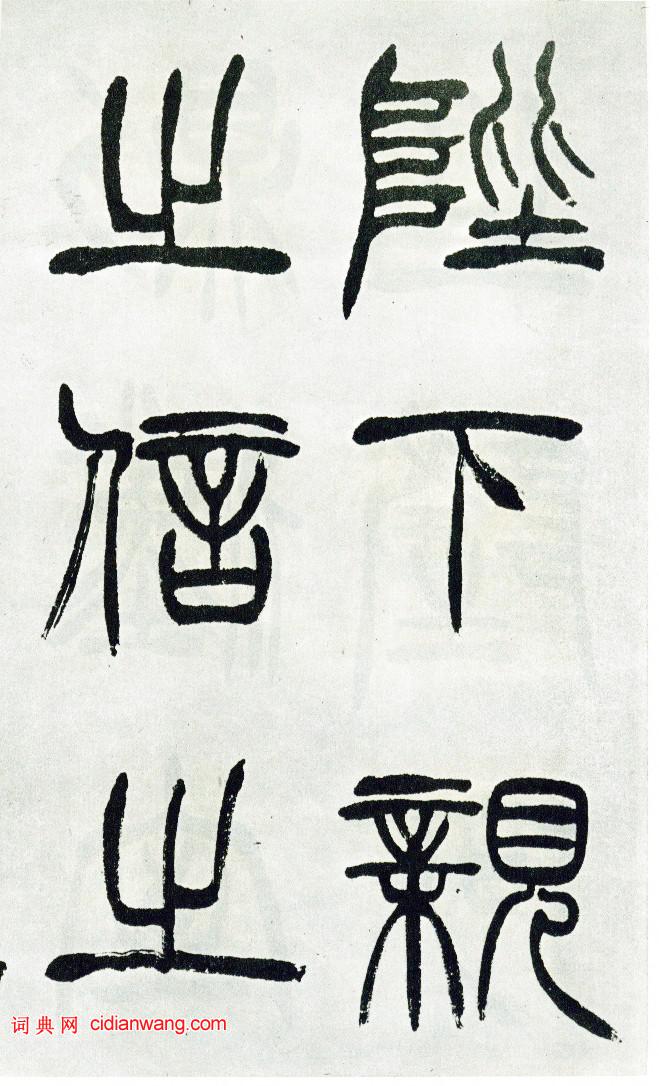 陛下親
之信之
词典网 cidianwang.com